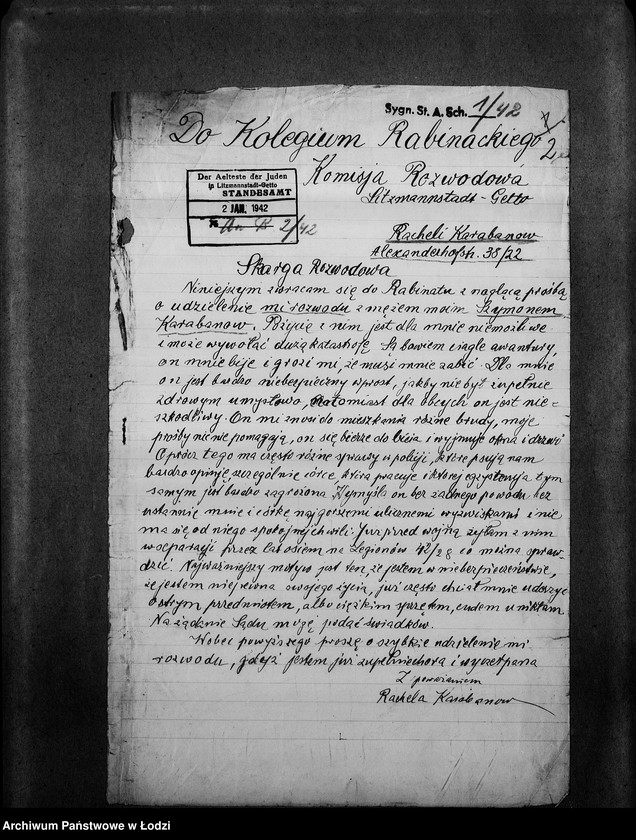 Sygn. St. A. Sch. 1/42
2
Do Kolegium Rabinackiego
Komisja Rozwodowa
Litzmannstadt-Getto
Der Aelteste der Juden
in Litzmannstadt-Getto
STANDESAMT
2 JAN. 1942
№ 2/42
Racheli Karabanow
Alexanderhofstr. 38/22
Skarga Rozwodowa
Niniejszym zwracam się do Rabinatu z naglącą prośbą
o udzielenie mi rozwodu z mężem moim Szymonem
Karabanow. Pożycie z nim jest dla mnie niemożliwe
i może wywołać dużą katastrofę. Są bowiem ciągłe awantury,
on mnie bije i grozi mi, że musi mnie zabić. Dla mnie
on jest bardzo niebezpieczny wprost, jakby nie był zupełnie
zdrowym umysłowo, natomiast dla obcych on jest nie-
szkodliwy. On mi znosi do mieszkania różne brudy, moje
prośby nic nie pomagają, on się bierze do bicia i wyjmuje okna i drzwi
Oprócz tego ma często różne sprawy w policji, które psują nam
bardzo opinję szczególnie córce, która pracuje i której egzystencja tym
samym jest bardzo zagrożona. Wymyśla on bez żadnego powodu bez
ustannie mnie i córkę najgorszemi ulicznemi wyzwiskami i nie
ma się od niego spokojnych wili. Już przed wojną żyłam z nim
w separacji przez lat osiem na Legionów 42/28 co można spraw-
dzić. Najważniejszy motyw jest ten, że jestem w niebezpieczeństwie,
że jestem niepewna swojego życia, już często chciał mnie uderzyć
ostrym przedmiotem, albo ciężkim sprzętem, cudem uniknęłam.
Na żądanie Sądu mogę podać świadków.
Wobec powyższego proszę o szybkie udzielenie mi
rozwodu, gdyż jestem już zupełnie chora i wyczerpana
Z poważaniem
Rachela Karabanow
Archiwum Państwowe w Łodzi